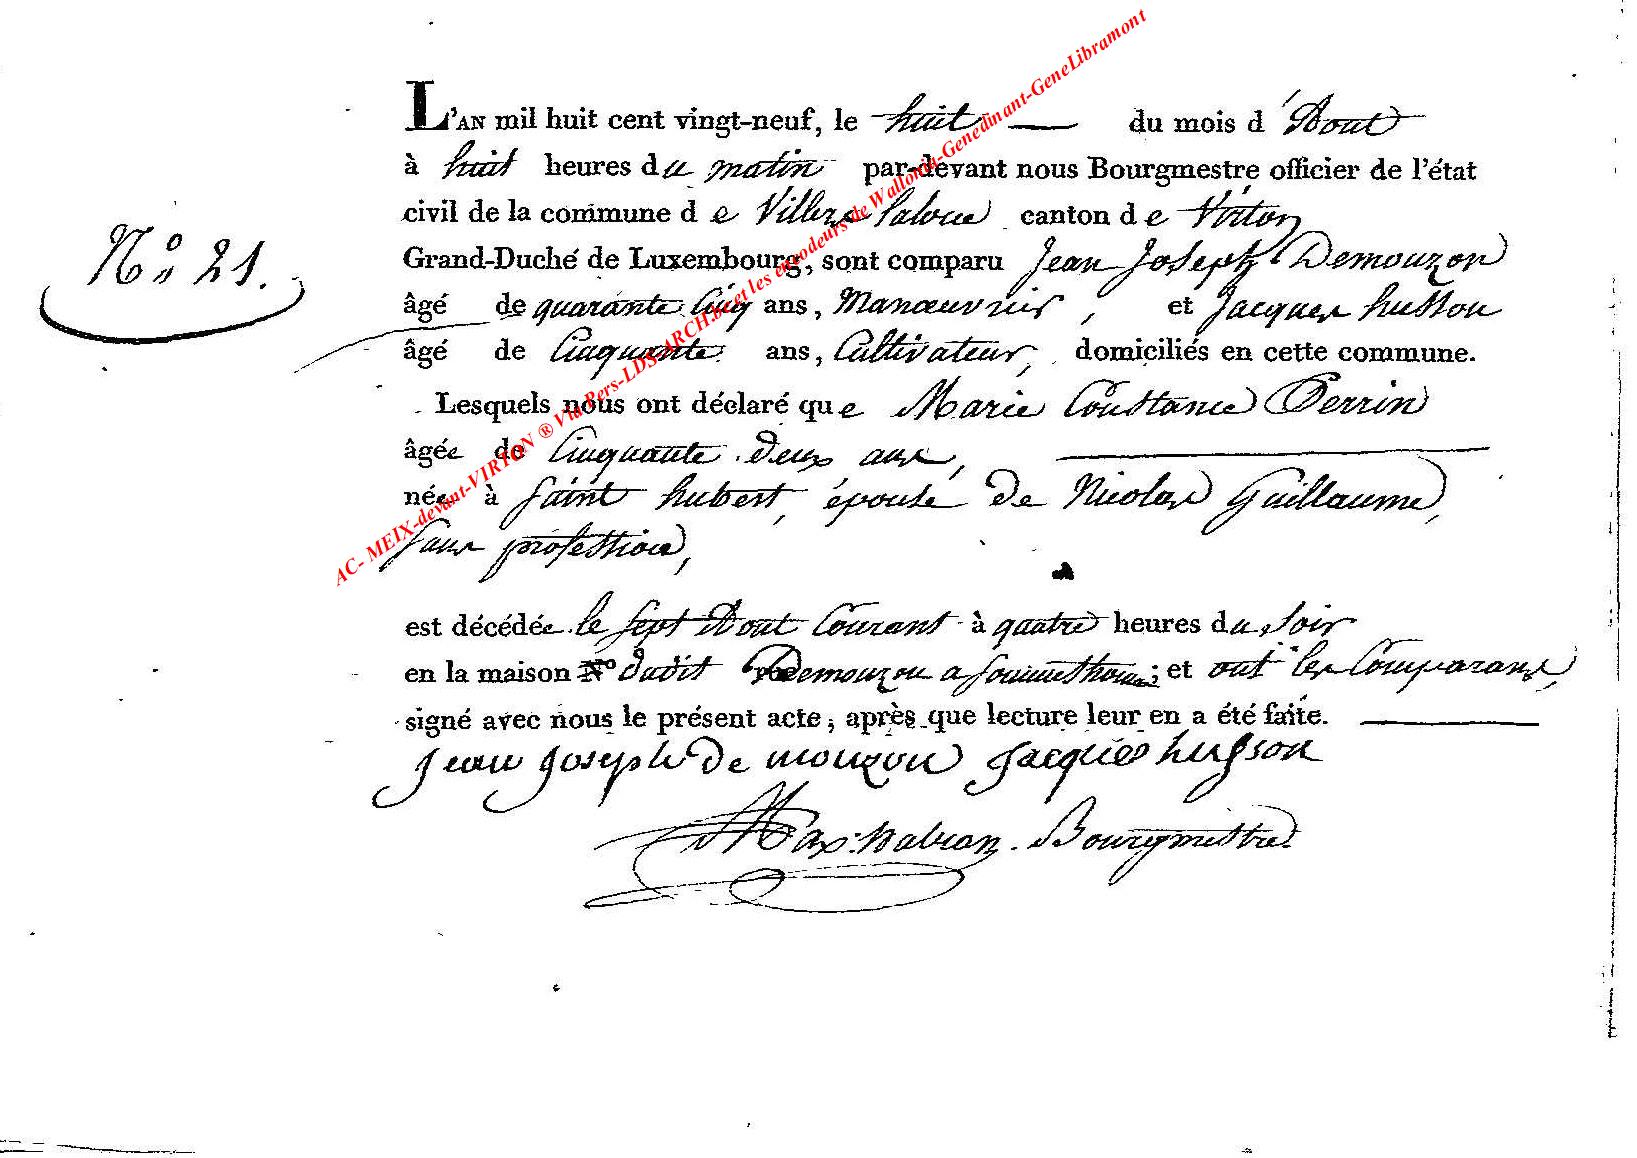 L'AN mil huit cent vingt-neuf, le huit du mois d'Aout
à huit heures du matin par-devant nous Bourgmestre officier de l'état
civil de la commune de Villers la loue canton de Virton
N° 21.
Grand-Duché de Luxembourg, sont comparu Jean Joseph Demouzon
âgé de quarante cinq ans, Manœuvrier, et Jacques husson
âgé de Cinquante ans, Cultivateur, domiciliés en cette commune.
Lesquels nous ont déclaré que Marie Constance Perrin
âgée de Cinquante deux ans,
née à Saint hubert, épouse de Nicolas Guillaume,
sans profession,
est décédée le sept Aout Courant à quatre heures du soir
en la maison N° dudit Demouzon a Sommethonne; et ont les Comparans,
signé avec nous le présent acte, après que lecture leur en a été faite.
Jean Joseph De mouzon Jacques husson
Bourgmestre
AC- MEIX-devant-VIRTON ® Via Pers-LDS-ARCH.be et les encodeurs de Wallonia-Genedinant-GeneLibramont